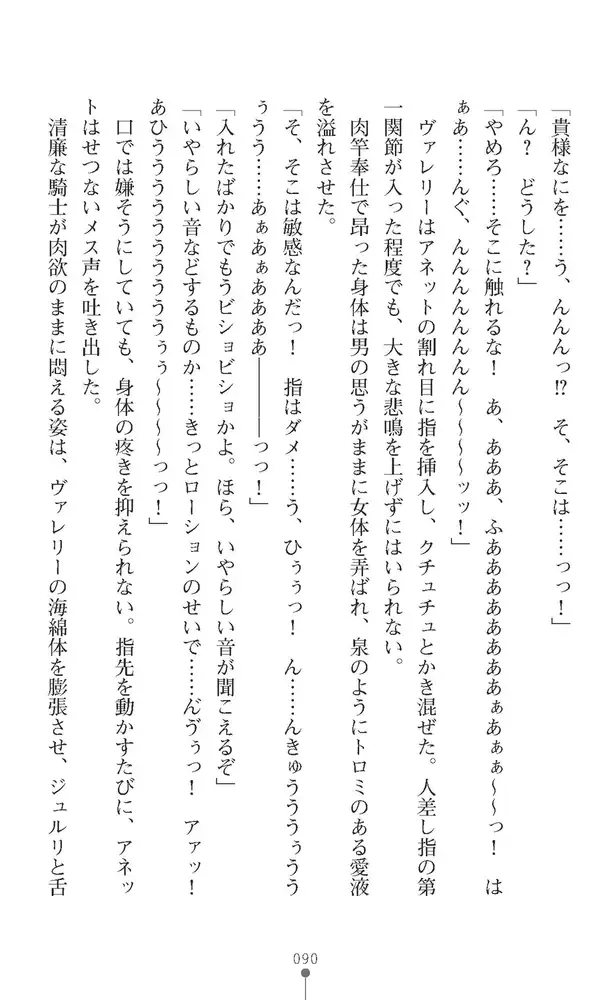 「貴様なにを……う、んんんっ!?　そ、そこは……っっ！」
「ん？　どうした？」
「やめろ……そこに触れるな！　あ、あああ、ふああああああああぁあぁぁ～～っ！　は
ぁあ……んぐ、んんんんんんん～～～～ッッ！」
　ヴァレリーはアネットの割れ目に指を挿入し、クチュチュとかき混ぜた。人差し指の第
一関節が入った程度でも、大きな悲鳴を上げずにはいられない。
　肉竿奉仕で昂った身体は男の思うがままに女体を弄ばれ、泉のようにトロミのある愛液
を溢れさせた。
「そ、そこは敏感なんだっ！　指はダメ……う、ひぅぅっ！　ん……んきゅうううぅうう
ぅうう……あぁあぁああああ――――っっ！」
「入れたばかりでもうビショビショかよ。ほら、いやらしい音が聞こえるぞ」
「いやらしい音などするものか……きっとローションのせいで……んゔぅっ！　アァッ！
あひううううううううぅぅ～～～～っっ！」
　口では嫌そうにしていても、身体の疼きを抑えられない。指先を動かすたびに、アネッ
トはせつないメス声を吐き出した。
　清廉な騎士が肉欲のままに悶える姿は、ヴァレリーの海綿体を膨張させ、ジュルリと舌
090